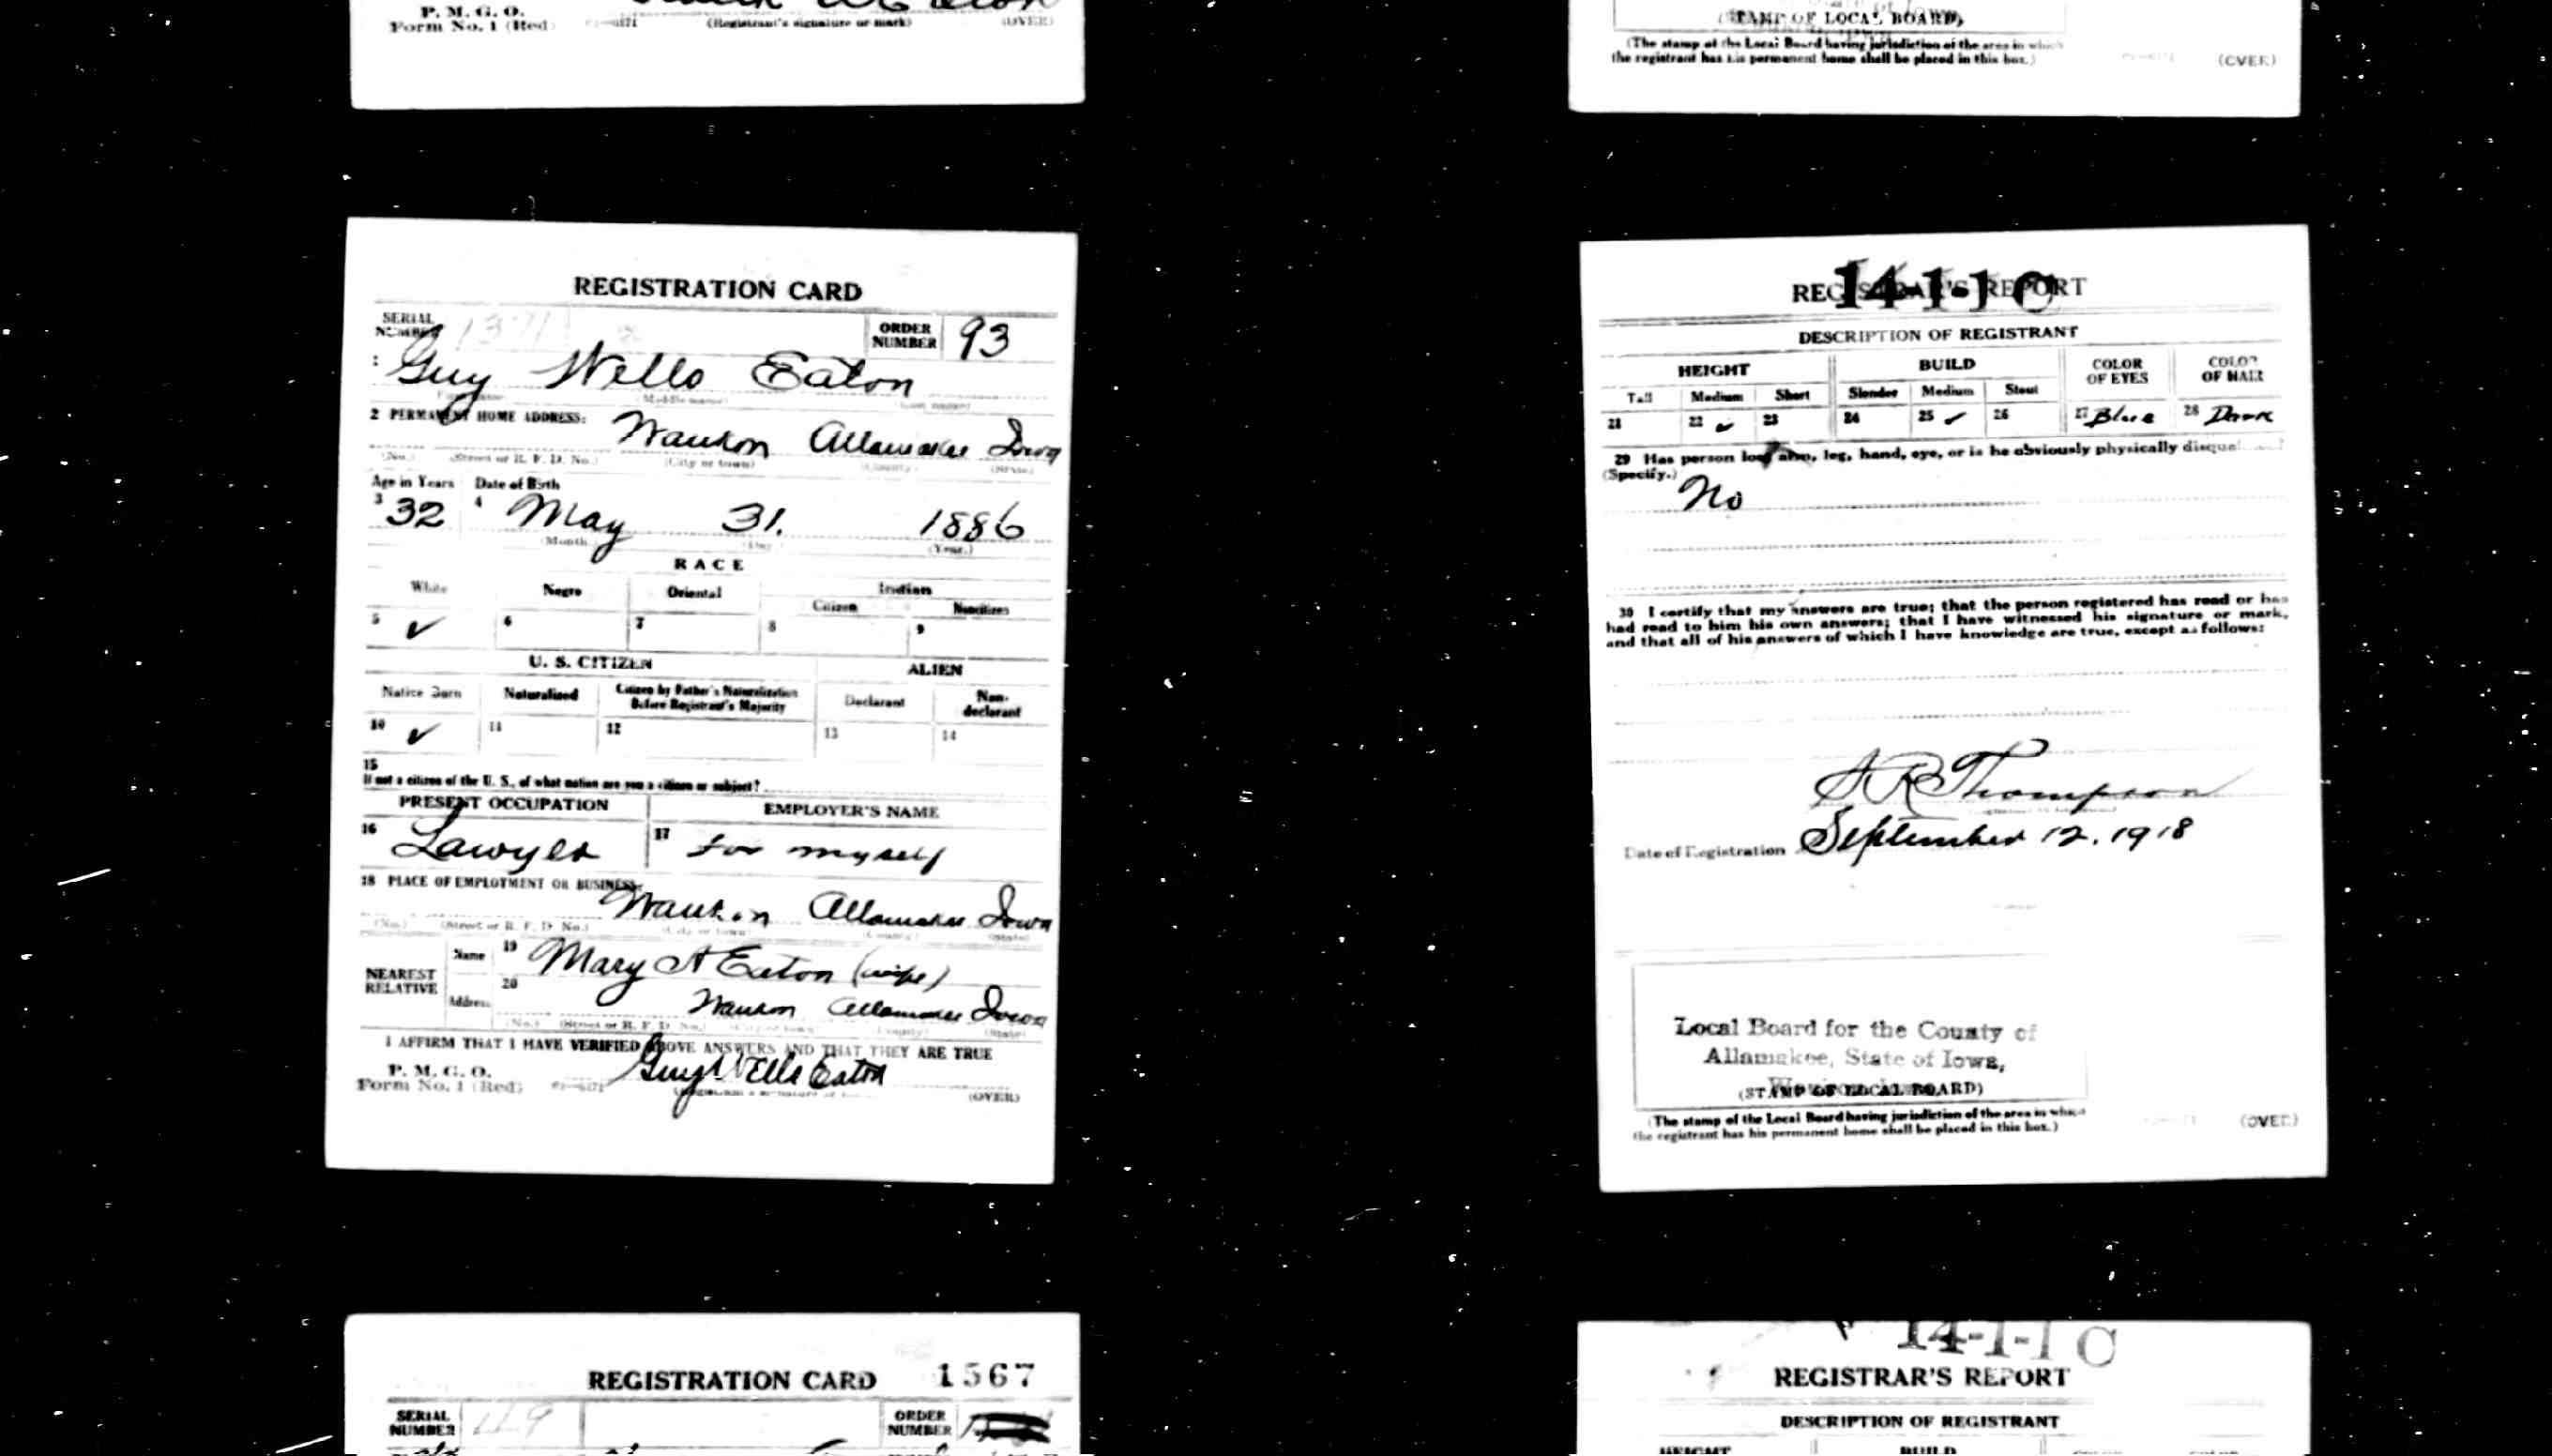 P. M. G. O.
Form No. 1 (Red)
(Registrant's signature or mark)
(OVER)
(STAMP OF LOCAL BOARD)
(The stamp of the Local Board having jurisdiction of the area in which
the registrant has his permanent home shall be placed in this box.)
(OVER)
REGISTRATION CARD
SERIAL NUMBER 1371 ORDER NUMBER 93
1 Guy Wells Eaton
Middle name
2 PERMANENT HOME ADDRESS:
Waukon Allamakee Iowa
(No.) (Street or R. F. D. No.) (City or town) (County) (State)
Age in Years Date of Birth
3 32 4 May 31. 1886
(Month) (Day) (Year.)
RACE
White Negro Oriental Indian
Citizen Noncitizen
5 ✓ 6 7 8 9
U. S. CITIZEN ALIEN
Native Born Naturalized Citizen by Father's Naturalization Before Registrant's Majority Declarant Non-declarant
10 ✓ 11 12 13 14
15
If not a citizen of the U. S., of what nation are you a citizen or subject?
PRESENT OCCUPATION EMPLOYER'S NAME
16 Lawyer 17 for myself
18 PLACE OF EMPLOYMENT OR BUSINESS:
Waukon Allamakee Iowa
(No.) (Street or R. F. D. No.) (City or town) (County) (State)
NEAREST RELATIVE
Name 19 Mary A Eaton (wife)
Address 20 Waukon Allamakee Iowa
(No.) (Street or R. F. D. No.) (City or town) (County) (State)
I AFFIRM THAT I HAVE VERIFIED ABOVE ANSWERS AND THAT THEY ARE TRUE
P. M. G. O.
Form No. 1 (Red)
Guy Wells Eaton
(OVER)
14-1-1 C
REGISTRAR'S REPORT
DESCRIPTION OF REGISTRANT
HEIGHT BUILD COLOR OF EYES COLOR OF HAIR
Tall Medium Short Slender Medium Stout
21 22 ✓ 23 24 25 ✓ 26 27 Blue 28 Dark
29 Has person lost arm, leg, hand, eye, or is he obviously physically disqualified?
(Specify.)
No
30 I certify that my answers are true; that the person registered has read or has
had read to him his own answers; that I have witnessed his signature or mark,
and that all of his answers of which I have knowledge are true, except as follows:
A R Thompson
Date of Registration September 12, 1918
Local Board for the County of
Allamakee, State of Iowa,
(STAMP OF LOCAL BOARD)
(The stamp of the Local Board having jurisdiction of the area in which
the registrant has his permanent home shall be placed in this box.)
(OVER)
REGISTRATION CARD 1567
SERIAL NUMBER ORDER NUMBER
14-1-1 C
REGISTRAR'S REPORT
DESCRIPTION OF REGISTRANT
HEIGHT BUILD